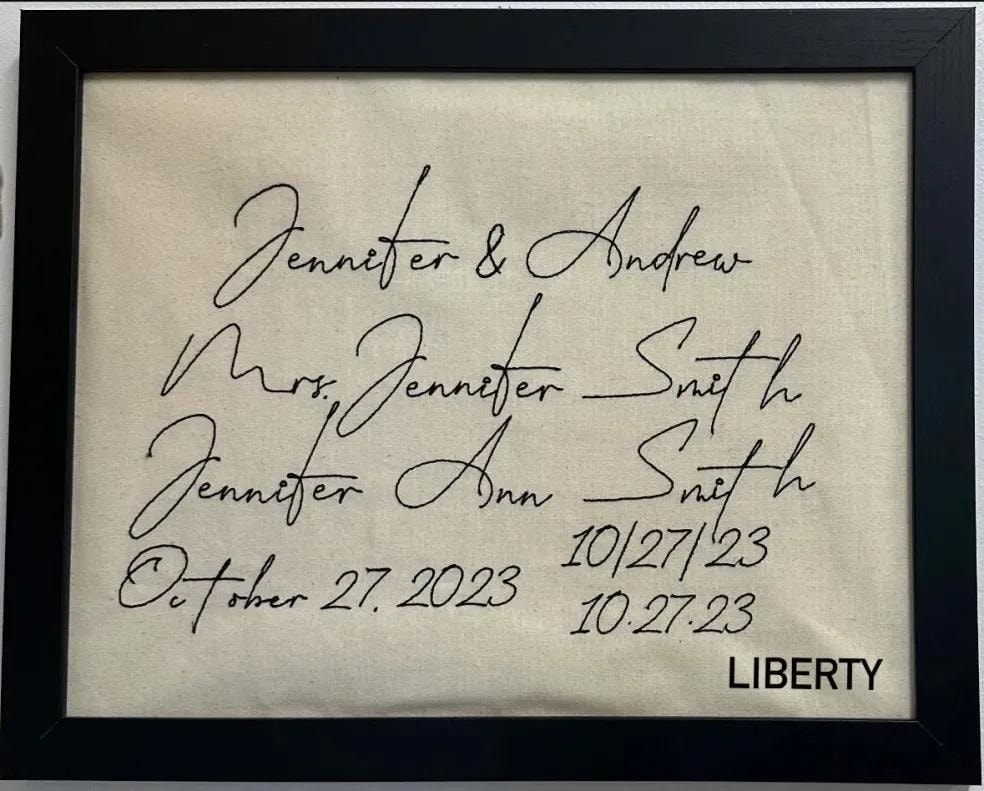 Jennifer & Andrew
Mrs. Jennifer Smith
Jennifer Ann Smith
10/27/23
October 27, 2023
10.27.23
LIBERTY